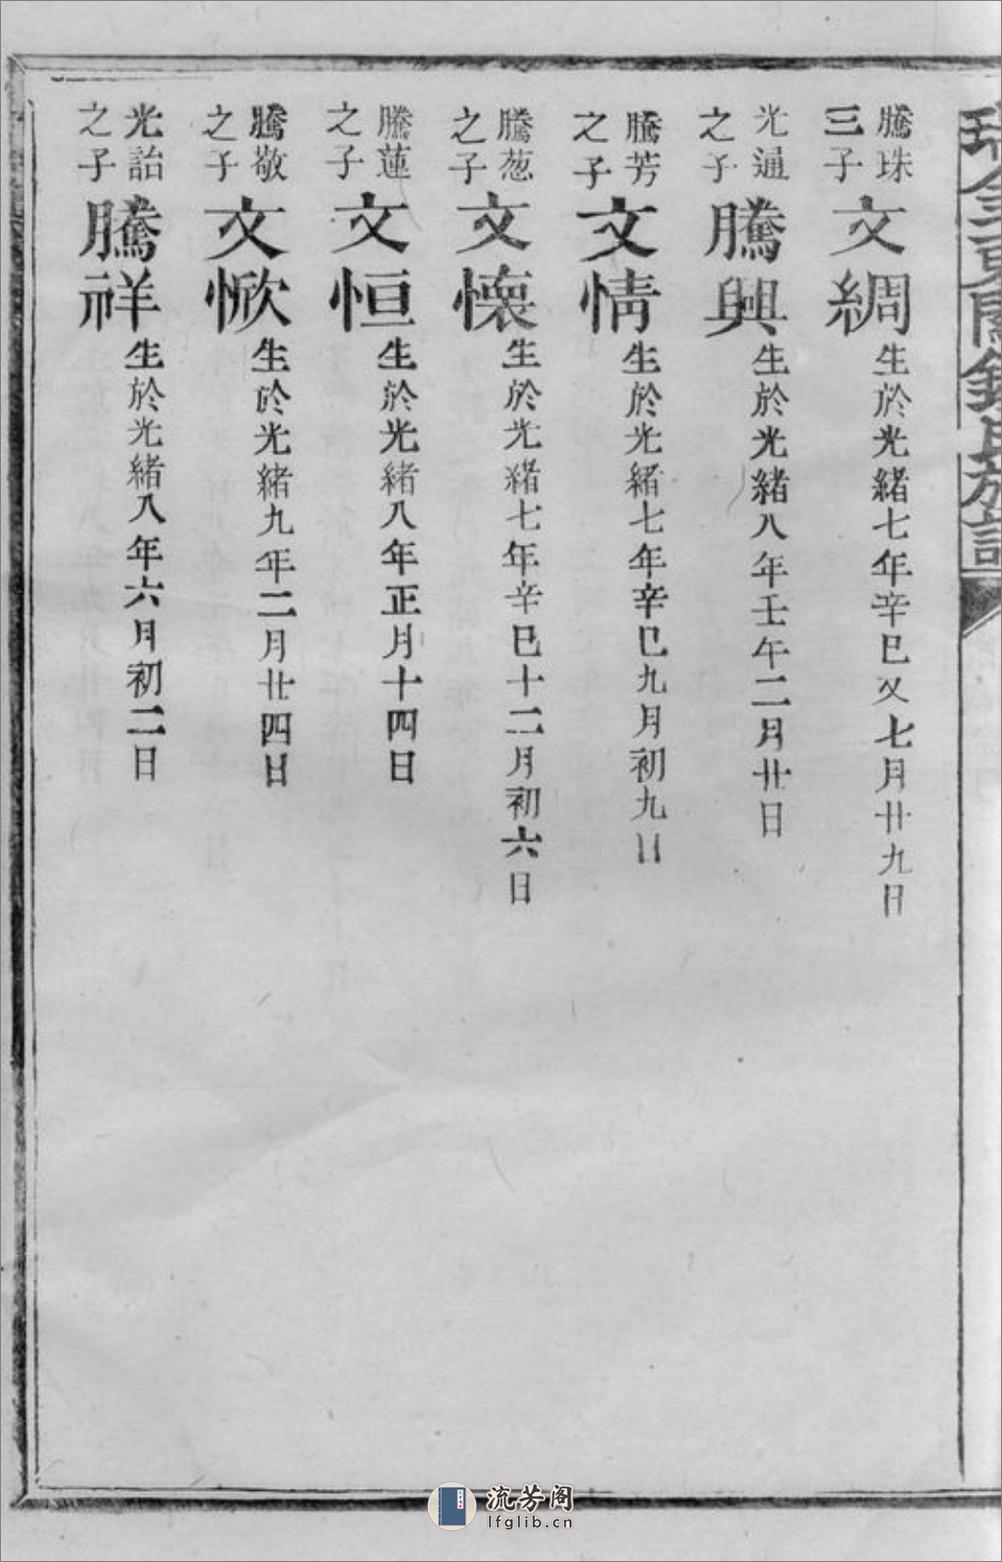 瑞金東關鍾氏族譜
騰珠三子
文綢
生於光緒七年辛巳又七月廿九日
光通之子
騰興
生於光緒八年壬午二月廿日
騰芳之子
文情
生於光緒七年辛巳九月初九日
騰葱之子
文懷
生於光緒七年辛巳十二月初六日
騰蓮之子
文恒
生於光緒八年正月十四日
騰敬之子
文惞
生於光緒九年二月廿四日
光詒之子
騰祥
生於光緒八年六月初二日
流芳阁
lfglib.cn